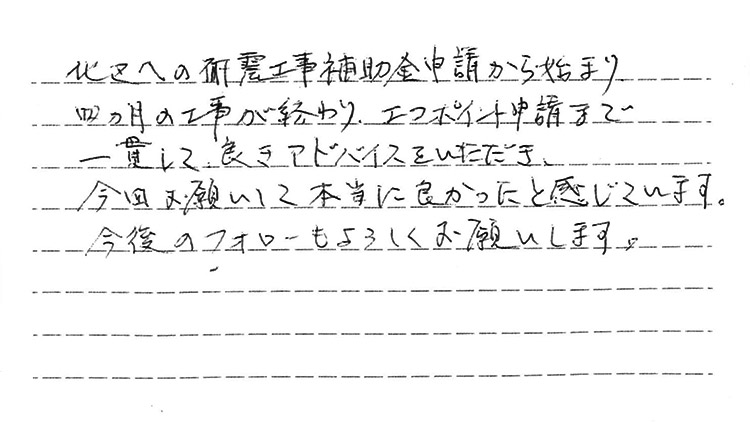 北区への耐震工事補助金申請から始まり
四ヵ月の工事が終わり、エコポイント申請まで
一貫して良きアドバイスをいただき、
今回お願いして本当に良かったと感じています。
今後のフォローもよろしくお願いします。